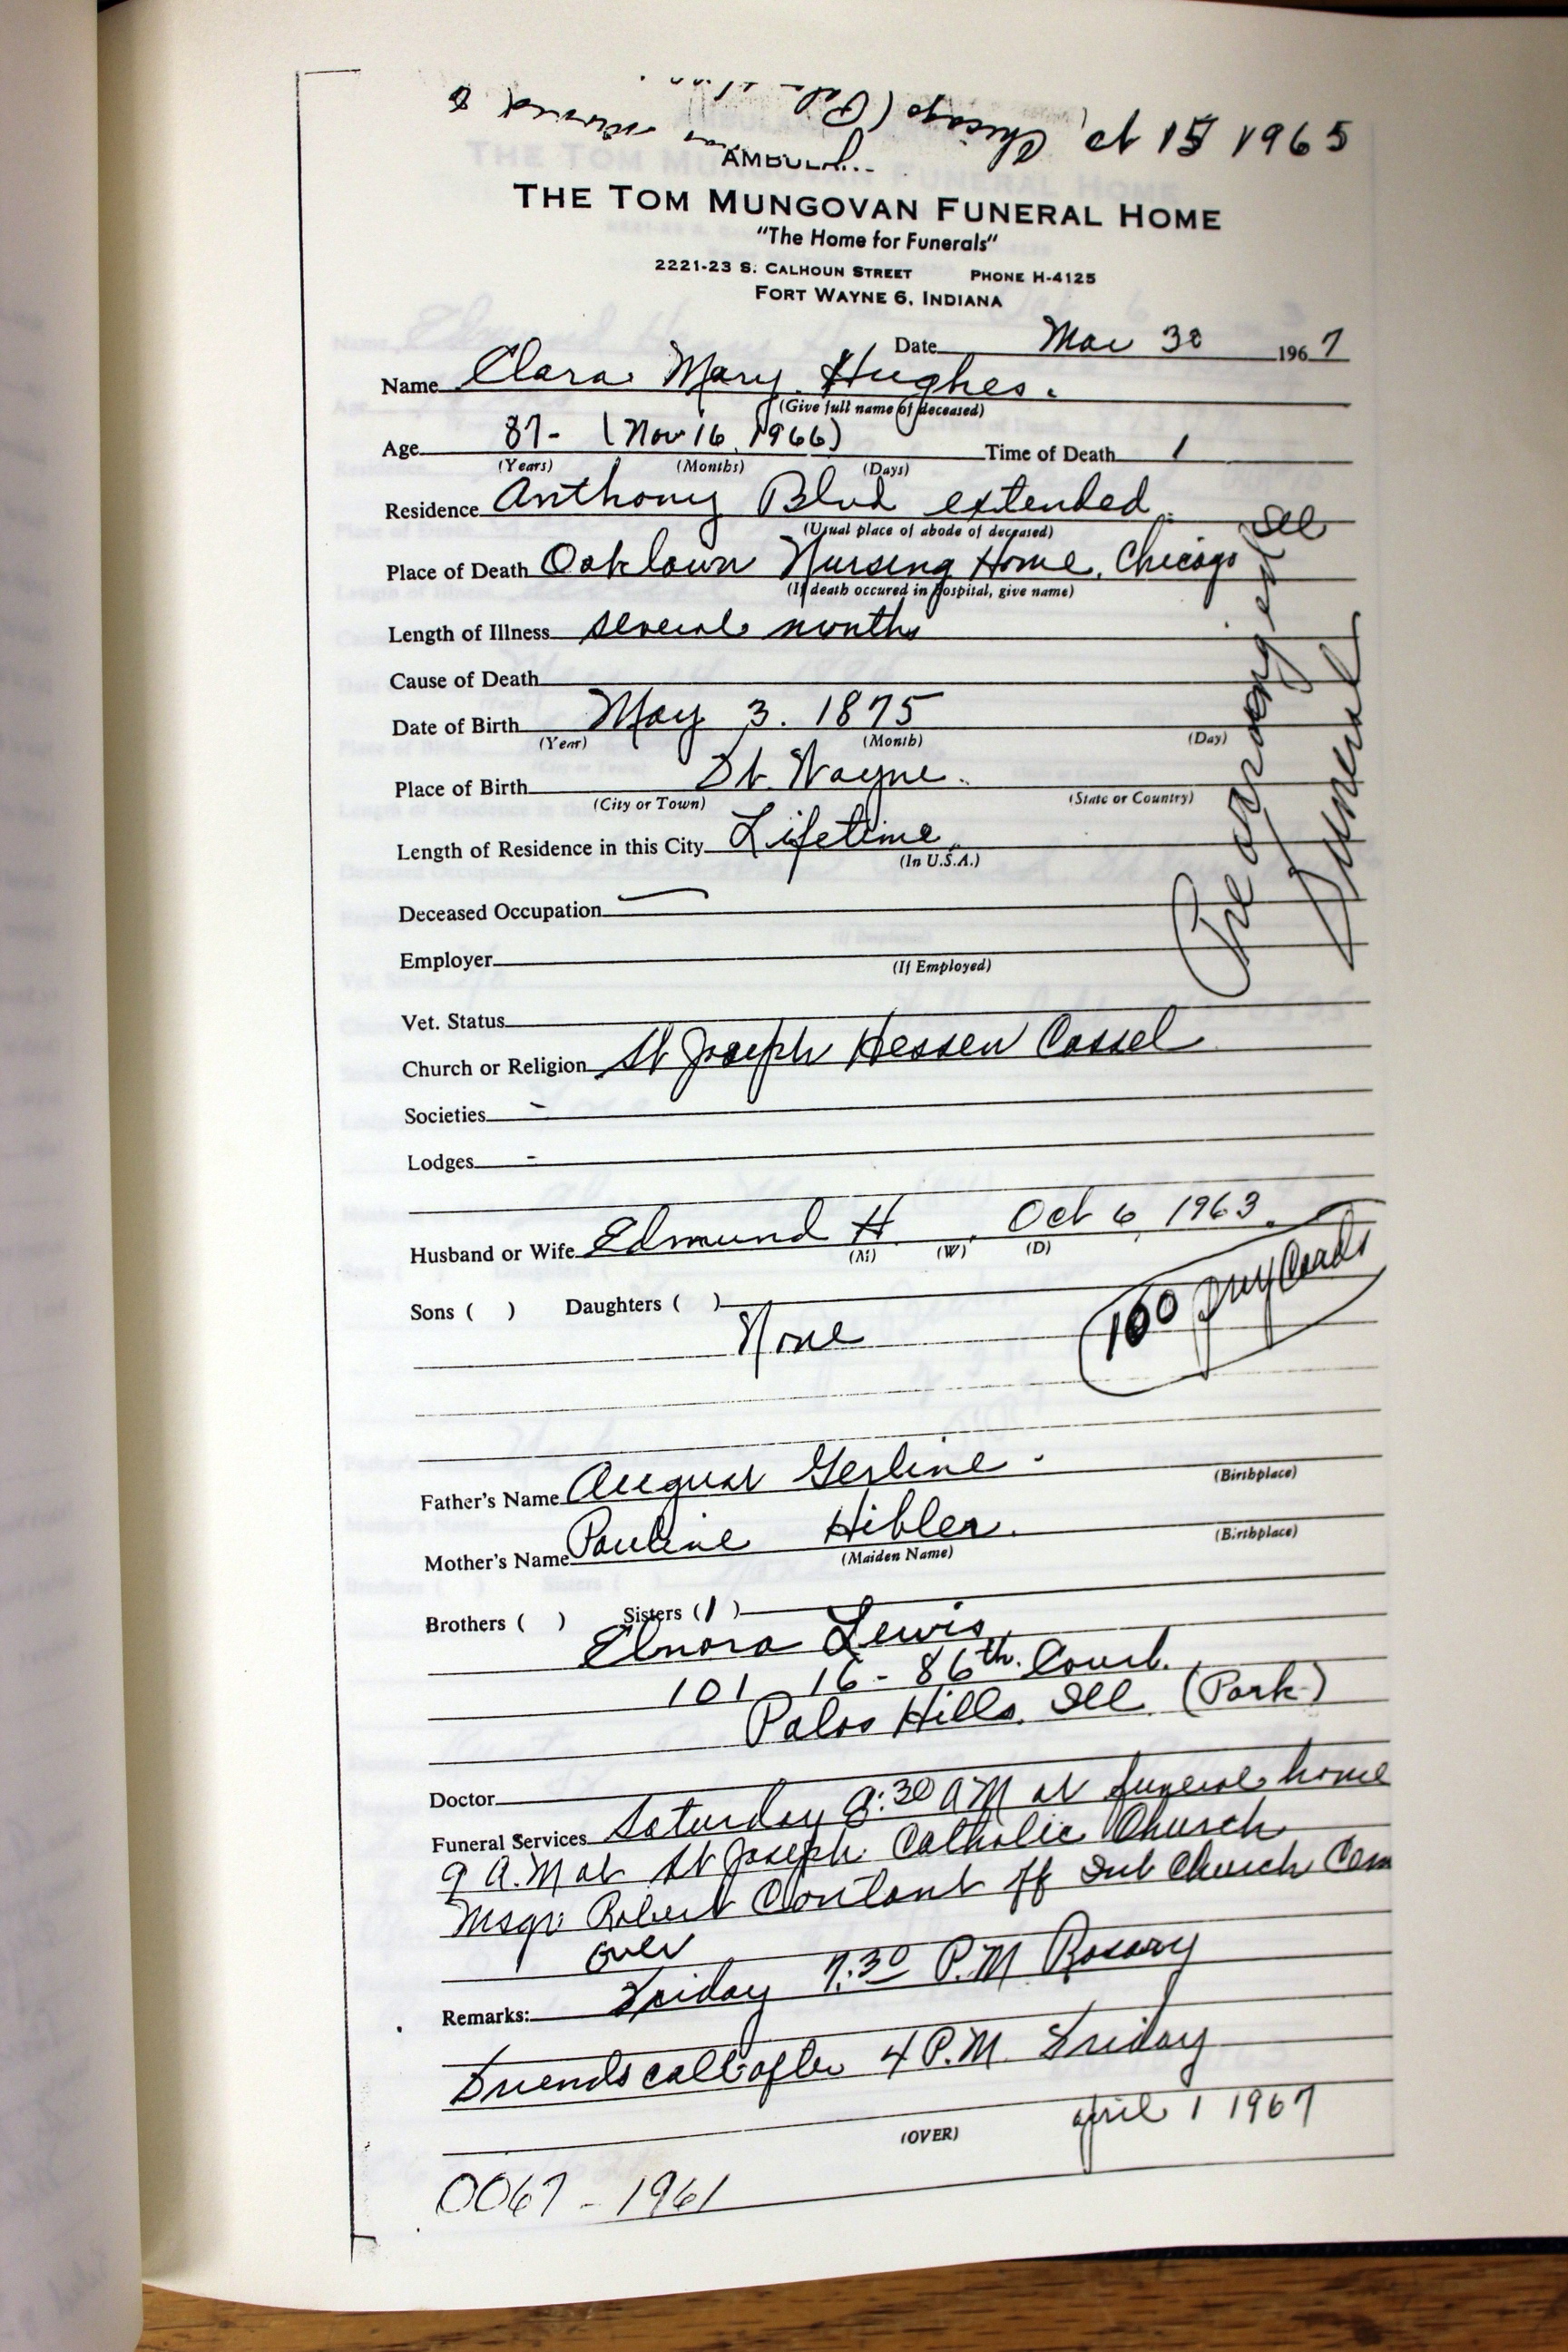 Chicago
15 1965
THE TOM MUNGOVAN FUNERAL HOME
"The Home for Funerals"
2221-23 S. CALHOUN STREET PHONE H-4125
FORT WAYNE 6, INDIANA
Date Mar 30 1967
Name Clara Mary Hughes.
(Give full name of deceased)
Age 87- (Nov 16, 1966) Time of Death 1
(Years) (Months) (Days)
Residence Anthony Blvd extended
(Usual place of abode of deceased)
Place of Death Oak lawn Nursing Home, Chicago Ill
(If death occured in hospital, give name)
Length of Illness several months
Cause of Death
Date of Birth May 3. 1875
(Year) (Month) (Day)
Place of Birth Ft. Wayne.
(City or Town) (State or Country)
Length of Residence in this City Lifetime
(In U.S.A.)
Deceased Occupation —
Employer
(If Employed)
Pre arranged
Funeral
Vet. Status
Church or Religion St Joseph Hessen Cassel
Societies -
Lodges -
Husband or Wife Edmund H. Oct 6, 1963.
(M) (W) (D)
Sons ( ) Daughters ( )
None
100 pray Cards
Father's Name August Gerline.
(Birthplace)
Mother's Name Pauline Hibler.
(Maiden Name) (Birthplace)
Brothers ( ) Sisters (1)
Elnora Lewis
101 16 - 86th. Court.
Palos Hills. Ill. (Park)
Doctor
Funeral Services Saturday 8:30 AM at funeral home
9 A.M at St Joseph Catholic Church
Msgr. Robert Contant off Int Church Cem
over
Remarks: Friday 7:30 P.M Rosary
Friends call after 4 P.M. Friday
(OVER) april 1 1967
0067 - 1961